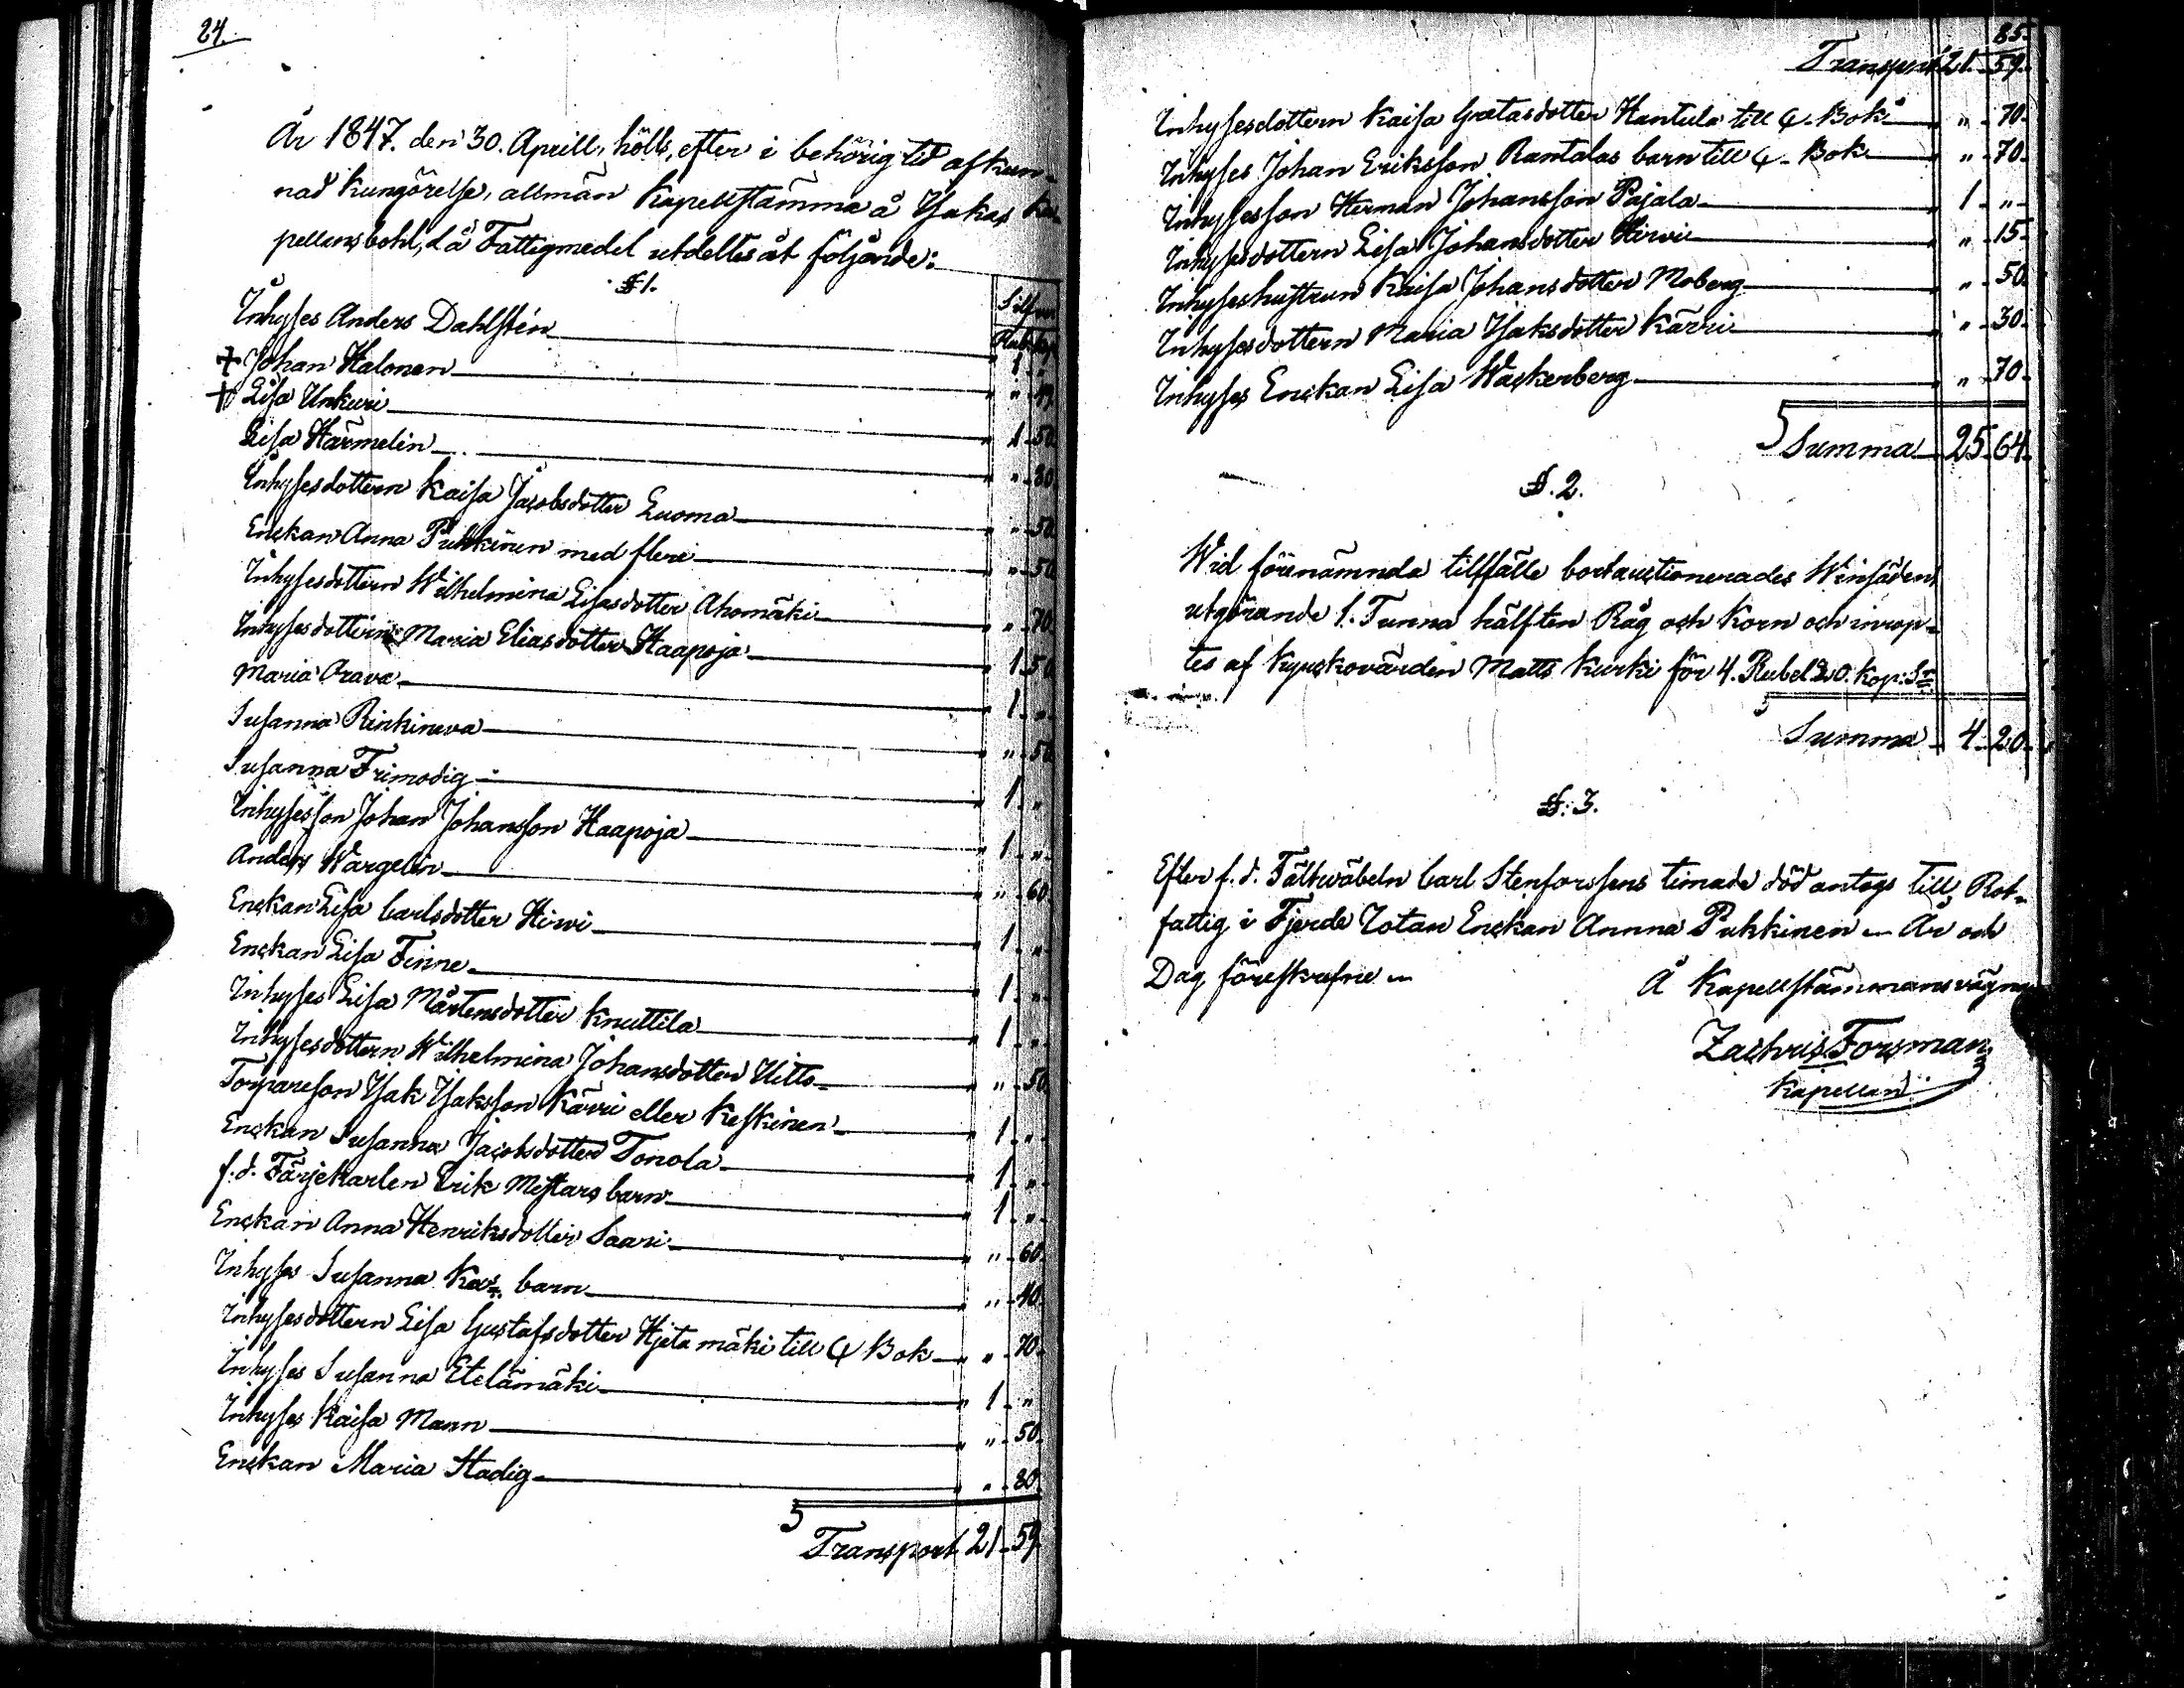 24.
År 1847. den 30. Aprill, hölls, efter i behörig tid afkun-
nad kungörelse, allmän Kapellstämma å Ysakas Ka-
pellansbohl, då Fattigmedel utdeltes åt följande:
§ 1.
Silfver
Rub. Kop.
Inhyses Anders Dahlstén 1 "
+ Johan Halonen " 49.
+ Lisa Unkuri 1 50.
Lisa Härmelin " 80.
Inhysesdottern Kaisa Jacobsdotter Luoma " 50.
Enckan Anna Puhkinen med flere " 50
Inhysesdottern Wilhelmina Lisasdotter Ahomäki " 70.
Inhysesdottern Maria Eliasdotter Haapoja 1 50
Maria Orava 1 "
Susanna Rinkineva " 50
Susanna Frimodig 1 "
Inhysesson Johan Johansson Haapoja 1 "
Anders Wargelin " 60.
Enckan Lisa Carlsdotter Hirvi 1 "
Enckan Lisa Finne 1 "
Inhyses Lisa Mårtensdotter Knuttila 1 "
Inhysesdottern Wilhelmina Johansdotter Uitto " 50
Torpareson Ysak Ysaksson Kärri eller Keskinen 1 "
Enckan Susanna Jacobsdotter Tonola 1 "
f.d. Färjekarlen Erik Mestars barn 1 "
Enckan Anna Henriksdotter Saari " 60.
Inhyses Susanna barn " 40.
Inhysesdottern Lisa Gustafsdotter Hjetamäki till Bok " 70.
Inhyses Susanna Etelämäki 1 "
Inhyses Kaisa Mann " 50.
Enckan Maria Stadig " 80
Transport 21 59
85.
Transport 21. 59.
Inhysesdottern Kaisa Gretasdotter Hantula till Bok " 70.
Inhyses Johan Eriksson Rantalas barn till Bok " 70.
Inhysesson Herman Johansson Pajala 1 "
Inhysesdottern Lisa Johansdotter Hirvi " 15
Inhyseshustrun Kaisa Johansdotter Moberg " 50.
Inhysesdottern Maria Ysaksdotter Kärri " 30.
Inhyses Enckan Lisa Wackerberg " 70.
Summa 25 64.
§. 2.
Wid förenämnda tillfälle bortauctionerades Winsäden,
utgörande 1. Tunna hälften Råg och Korn och inrop-
tes af Kyrckovärden Matts Kurki för 4. Rubel 20. Kop: Sr
Summa 4 20.
§: 3.
Efter f.d. Fältwäbeln Carl Stenforssens timade död antogs till Rot-
fattig i Fjerde Rotan Enckan Annna Puhkinen — År och
Dag föreskrefne —
Å Kapellstämmans vägnar
Zachris Forsman
Kapellan